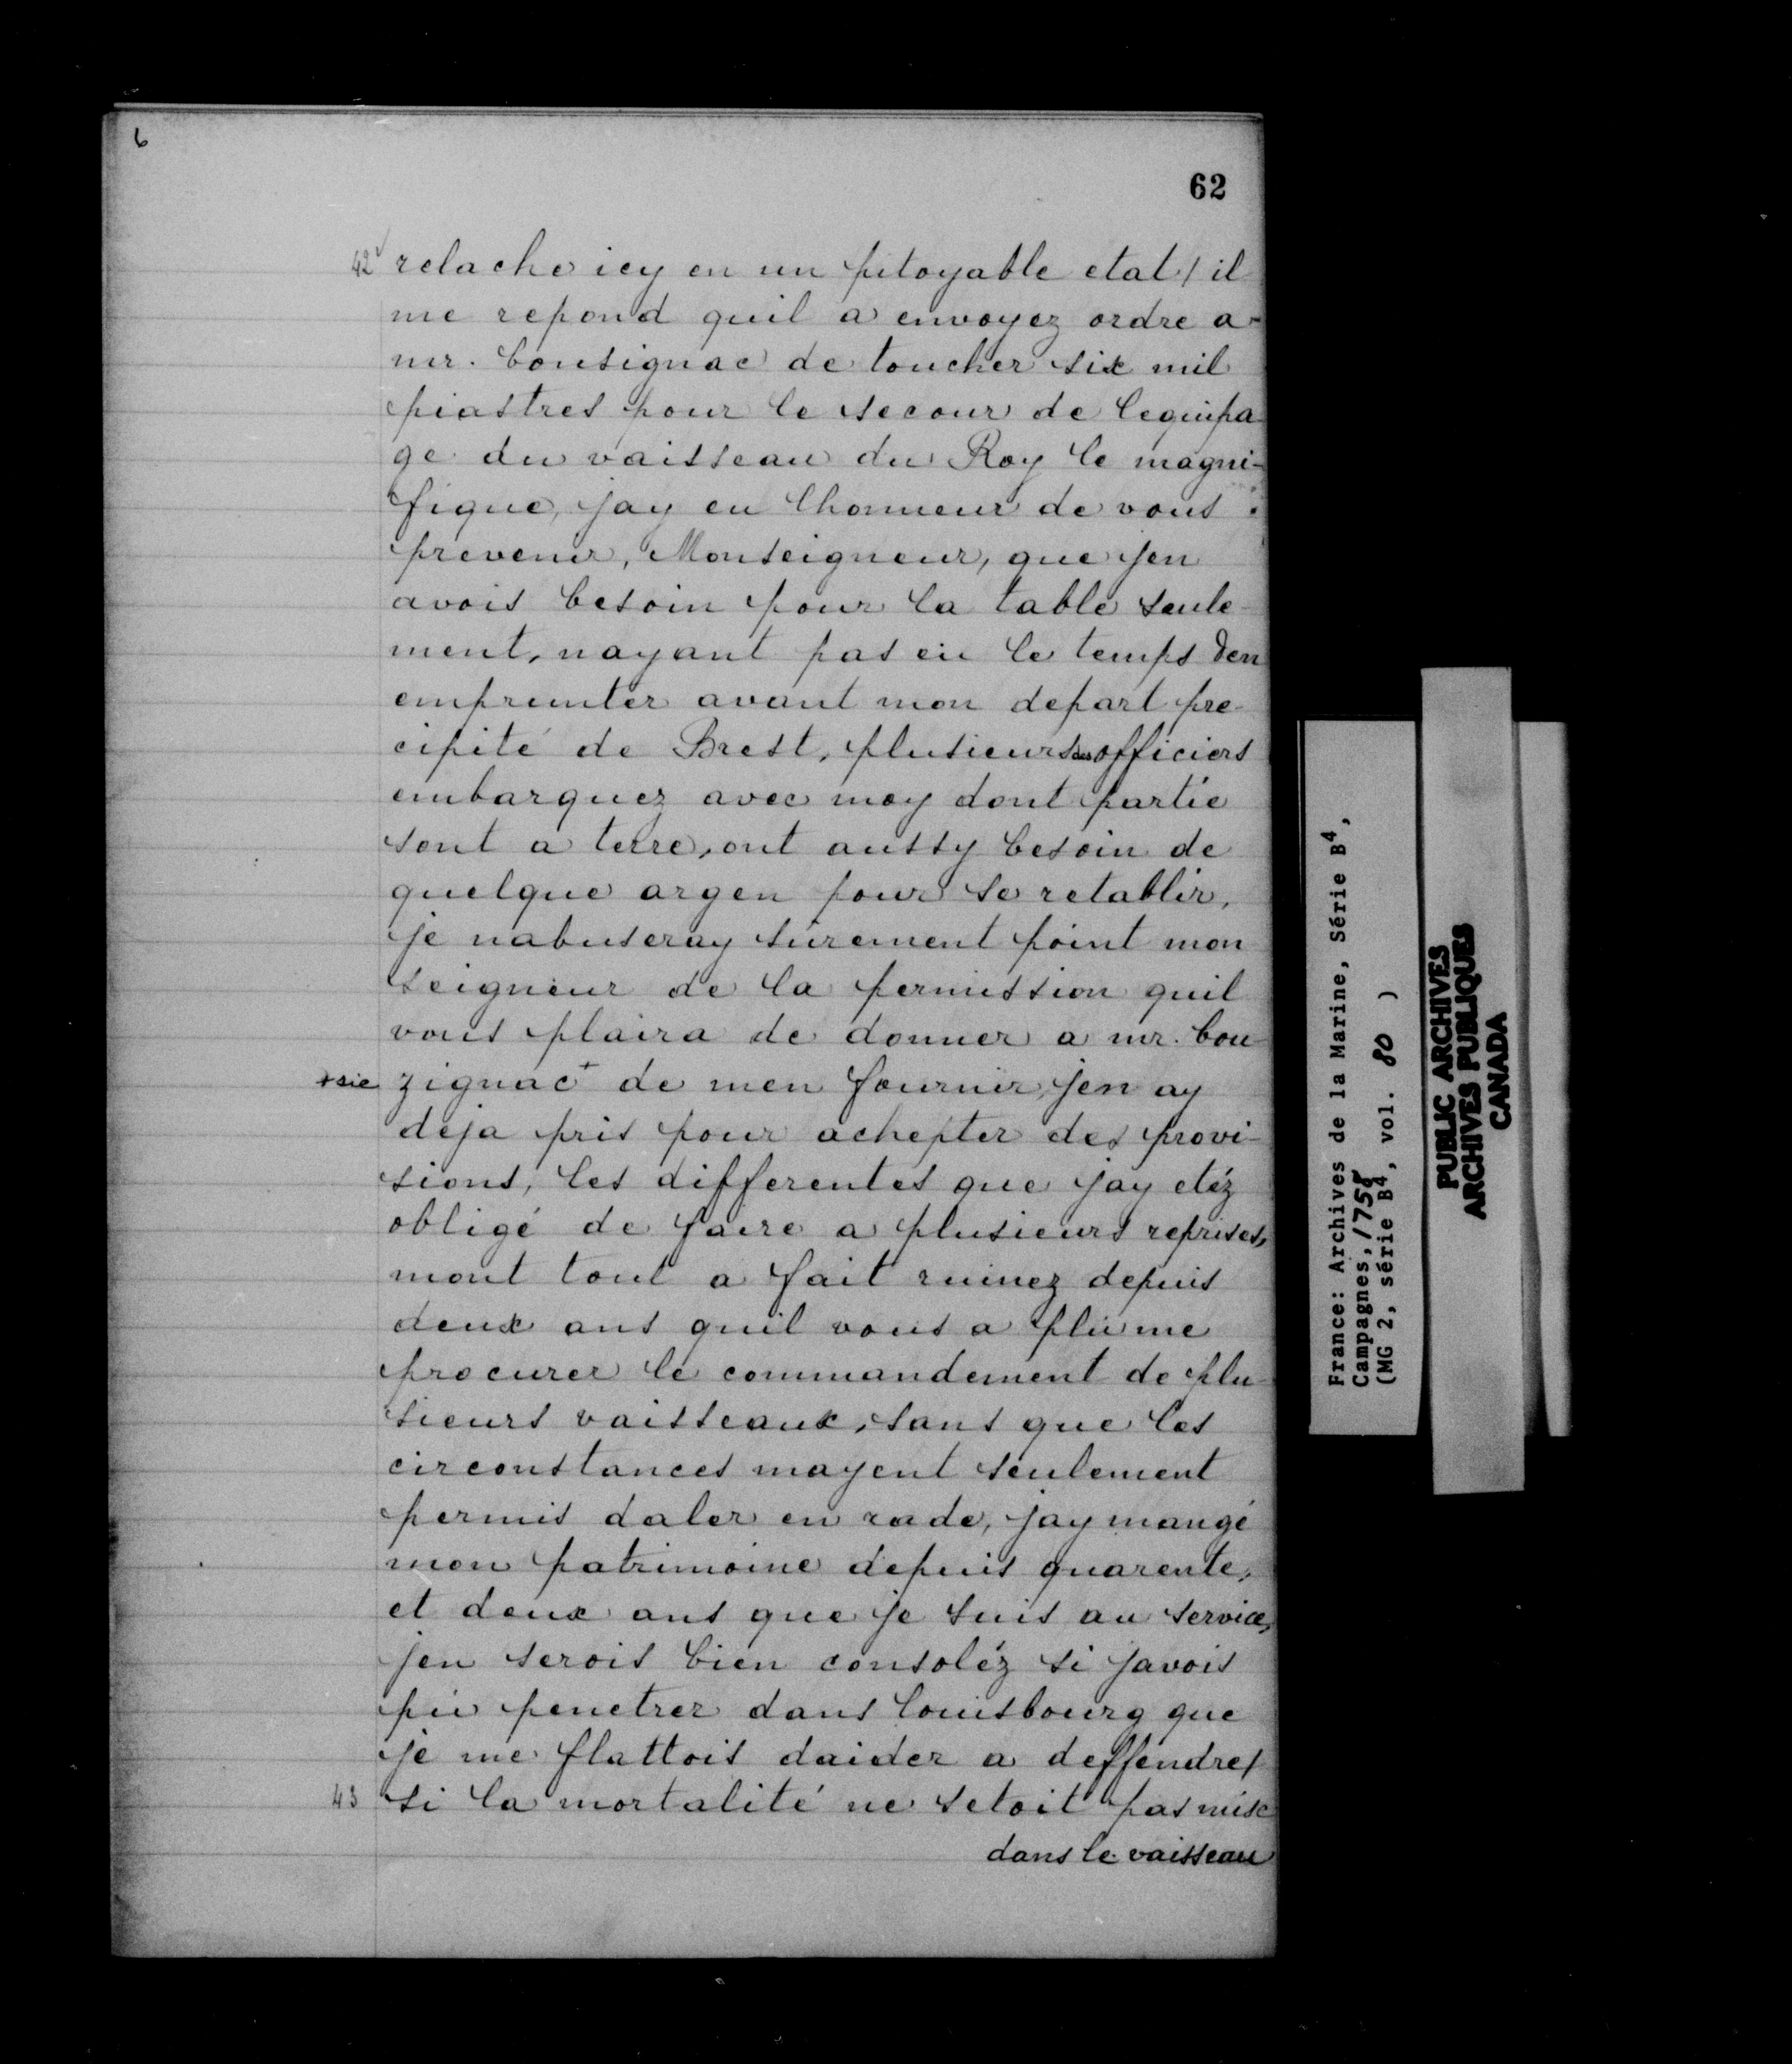 6
62
42v relache icy en un pitoyable etat / il
me repond quil a envoyez ordre a
mr. bousignac de toucher six mil
piastres pour le secour de lequipa
ge du vaisseau du Roy le magni-
fique, jay eu lhonneur de vous
prevenir, Monseigneur, que jen
avois besoin pour la table seule-
ment, nayant pas eü le temps den
emprunter avant mon depart pre-
cipité de Brest, plusieurs des officiers
embarquez avec moy dont partie
sont a terre, ont aussy besoin de
quelque argen pour se retablir,
je nabuseray sûrement point mon
seigneur de la permission quil
vous plaira de donner a mr. bou-
+sic zignac+ de men fournir, jen ay
deja pris pour achepter des provi-
sions, les differentes que jay etéz
obligé de faire a plusieurs reprises,
mont tout a fait ruinez depuis
deux ans quil vous a plü me
procurer le commandement de plu-
sieurs vaisseaux, sans que les
circonstances mayent seulement
permis daler en rade, jay mangé
mon patrimoine depuis quarente,
et deux ans que je suis au service,
jen serois bien consoléz si javois
pü penetrer dans louisbourg que
je me flattois daider a deffendre /
43 si la mortalité ne setoit pas mise
dans le vaisseau
France: Archives de la Marine, Série B4,
Campagnes, 1758
(MG 2, série B4, vol. 80 )
PUBLIC ARCHIVES
ARCHIVES PUBLIQUES
CANADA